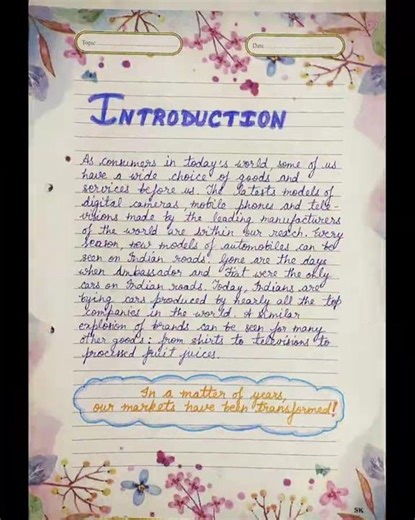 Topic
Date
INTRODUCTION
As consumers in today's world, some of us
have a wide choice of goods and
services before us. The latests models of
digital cameras, mobile phones and tele-
visions made by the leading manufacturers
of the world are within our reach. Every
season, new models of automobiles can be
seen on Indian roads. Gone are the days
when Ambassador and Fiat were the only
cars on Indian roads. Today, Indians are
bying cars produced by nearly all the top
companies in the world. A similar
explotion of brands can be seen for many
other goods: from shirts to televisions to
processed fruit juices.
In a matter of years,
our markets have been transformed!
SK